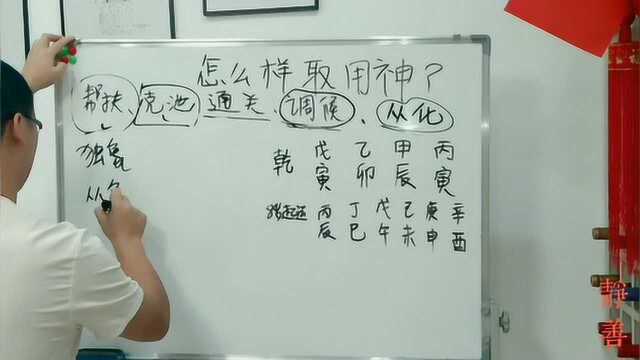 怎么样取用神?
帮扶 克泄 通关、调候、从化
独象
从
乾 戊 乙 甲 丙
寅 卯 辰 寅
起运 丙 丁 戊 己 庚 辛
辰 巳 午 未 申 酉
静善